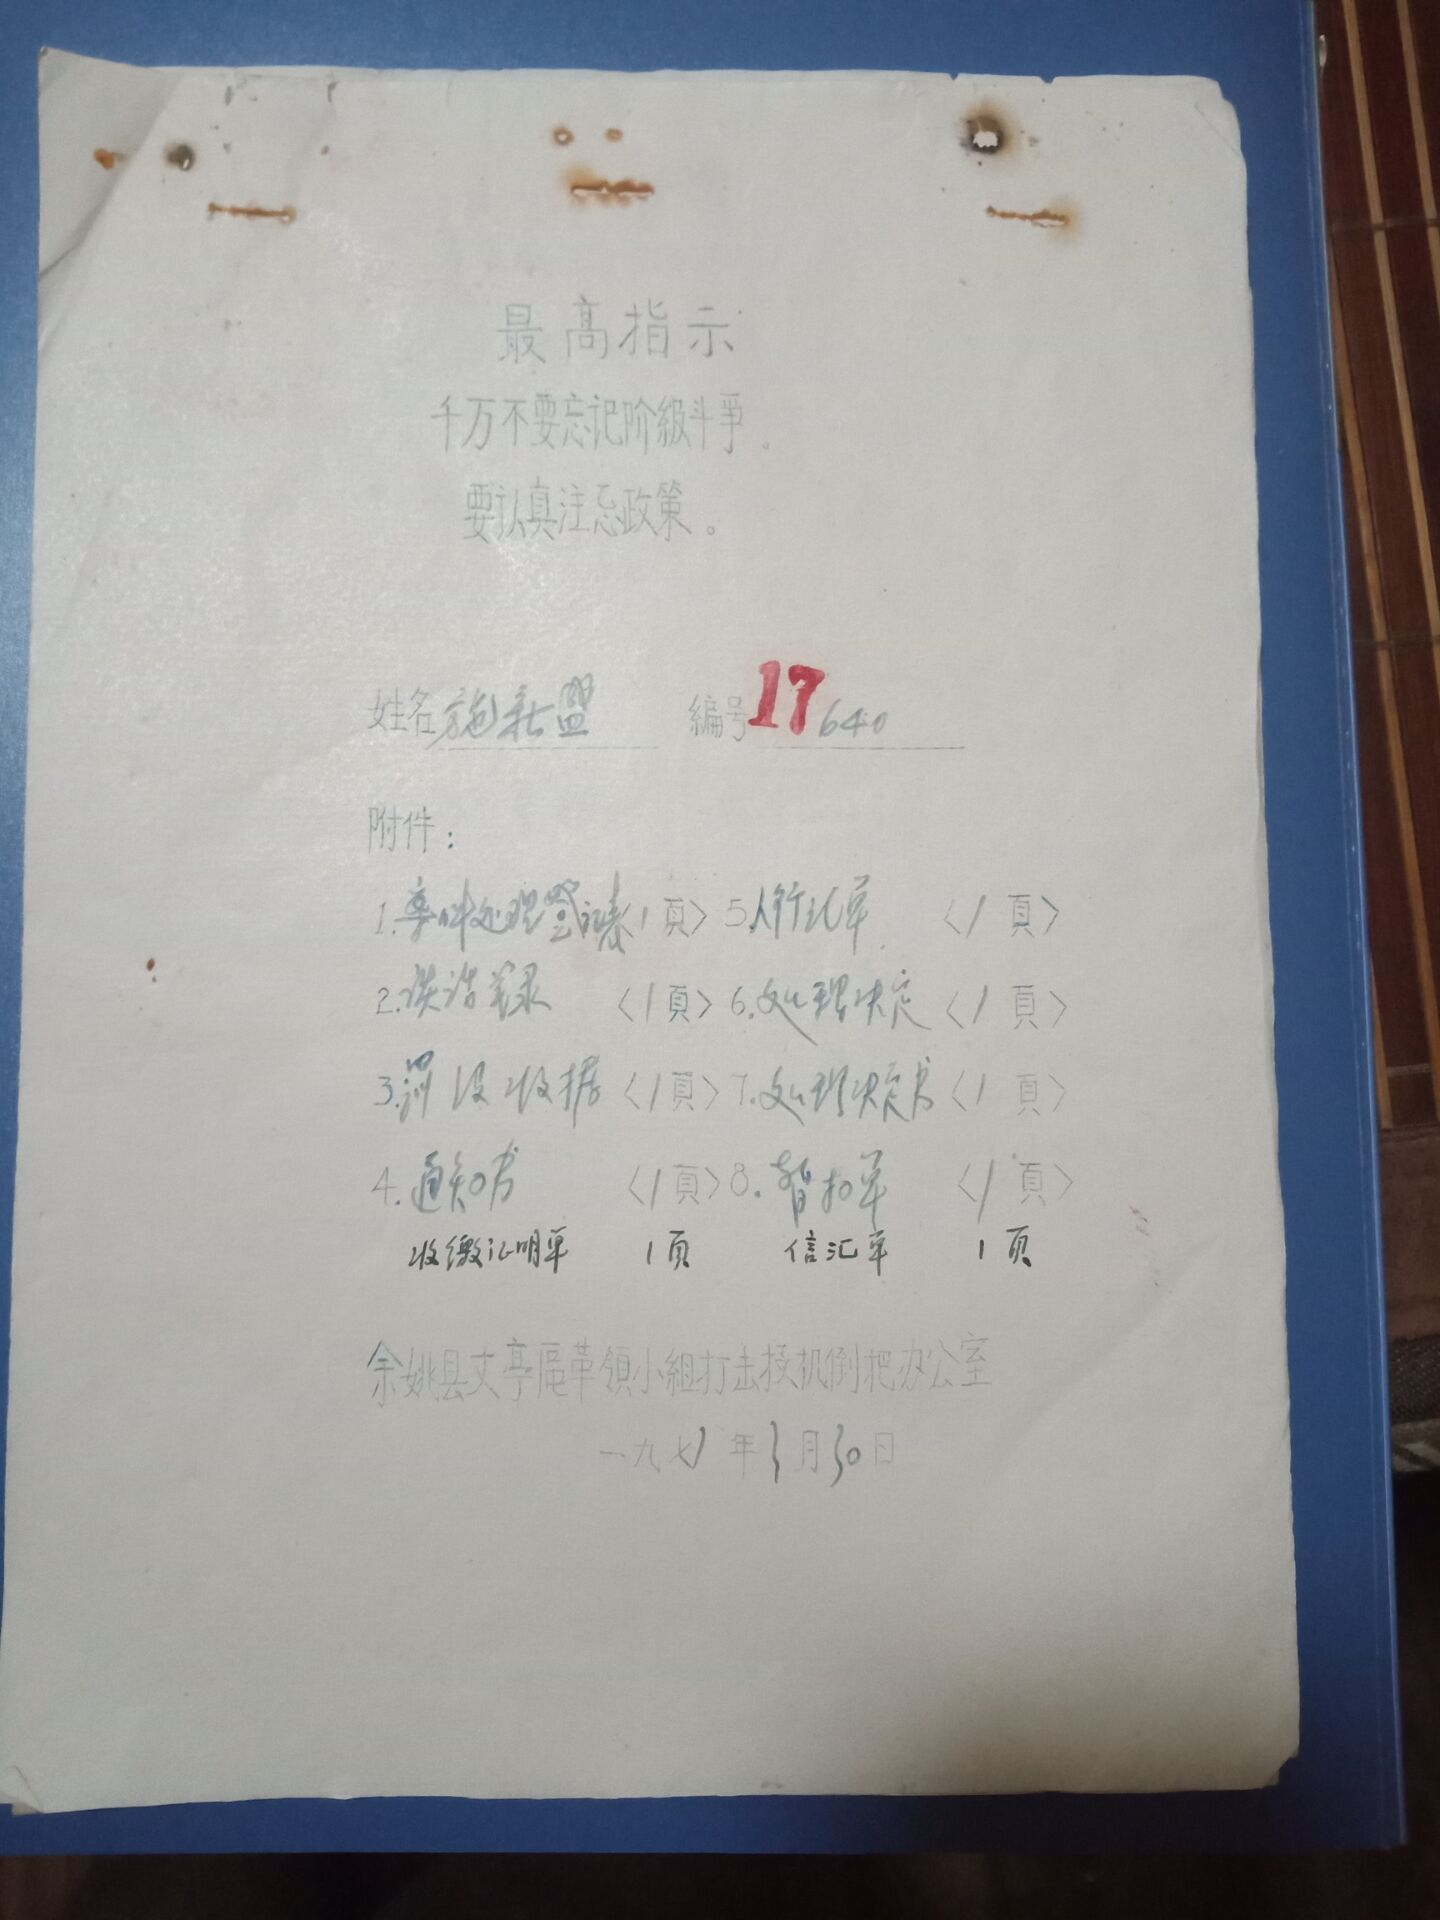 最高指示
千万不要忘记阶級斗爭。
要认真注忌政策。
姓名 施新盟 編号 17 640
附件：
1.案件处理登记表〈1頁〉 5.人行汇单〈1頁〉
2.谈话笔录〈1頁〉 6.处理决定〈1頁〉
3.罚没收据〈1頁〉 7.处理决定书〈1頁〉
4.通知书〈1頁〉 8.暂扣单〈1頁〉
收缴证明单 1页 信汇单 1页
余姚县丈亭區革領小組打击投机倒把办公室
一九七1年3月30日